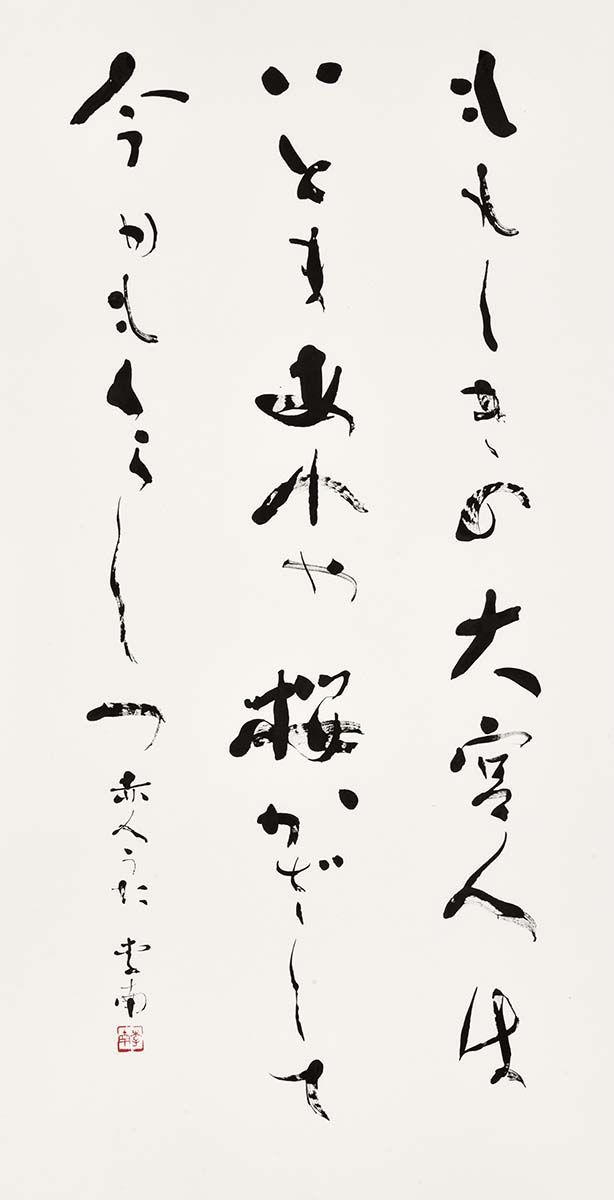 ももしきの大宮人は
いとまあれや桜かざして
今日もくらしつ 赤人うた 李南
李南